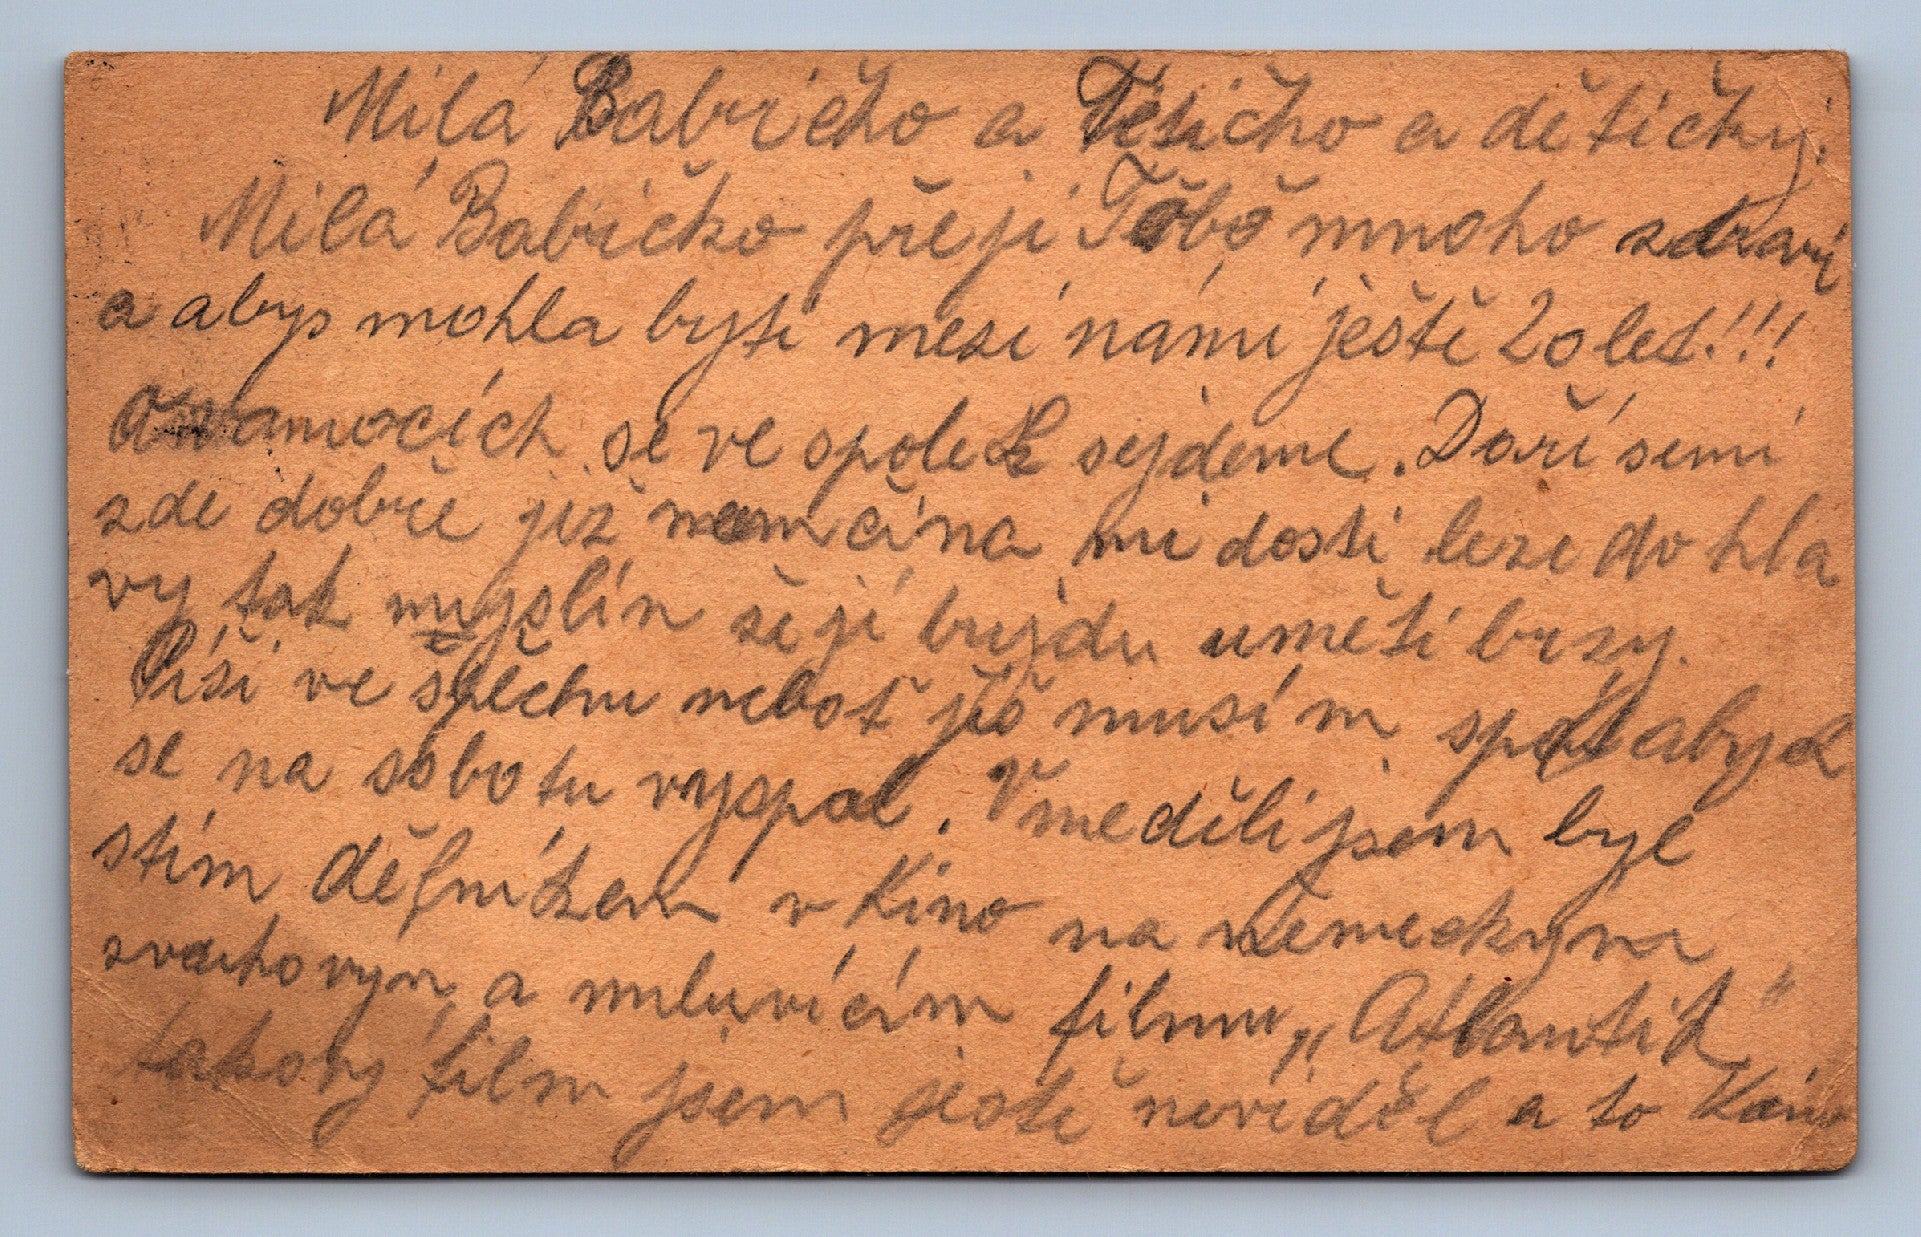 Milá Babričko a Tětičko a dětičky!
Milá Babričko přeji Tobě mnoho zdraví
a abys mohla byti mezi námi ještě 20 let!!!
O vamocích se ve spolek sejdeme. Daří semi
zde dobře již němčina mi dosti leze do hla
vy tak myslín že jí bujdu uměti brzy.
Píši ve spěchu neboť již musím spat abych
se na sobotu vyspal. V neděli jsem byl
stím dělníkem v Kino na německym
zvukovym a mluvícím filmu „Atlantik"
takový film jsem ještě neviděl a to